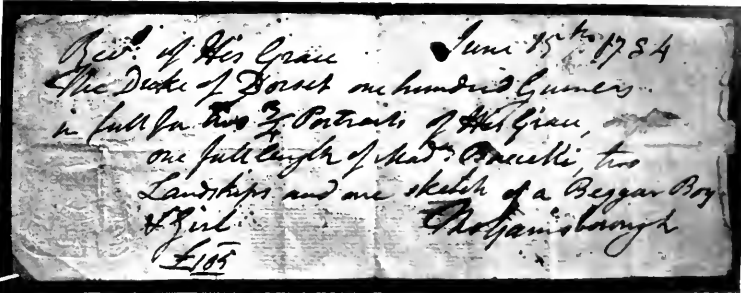 Recd. of His Grace June 15th. 1784
The Duke of Dorset one hundred Guineas
in full for two ¾ Portraits of His Grace,
one full length of Madm. Baccelli, two
Landskips and one sketch of a Beggar Boy
& Girl Tho Gainsborough
£105